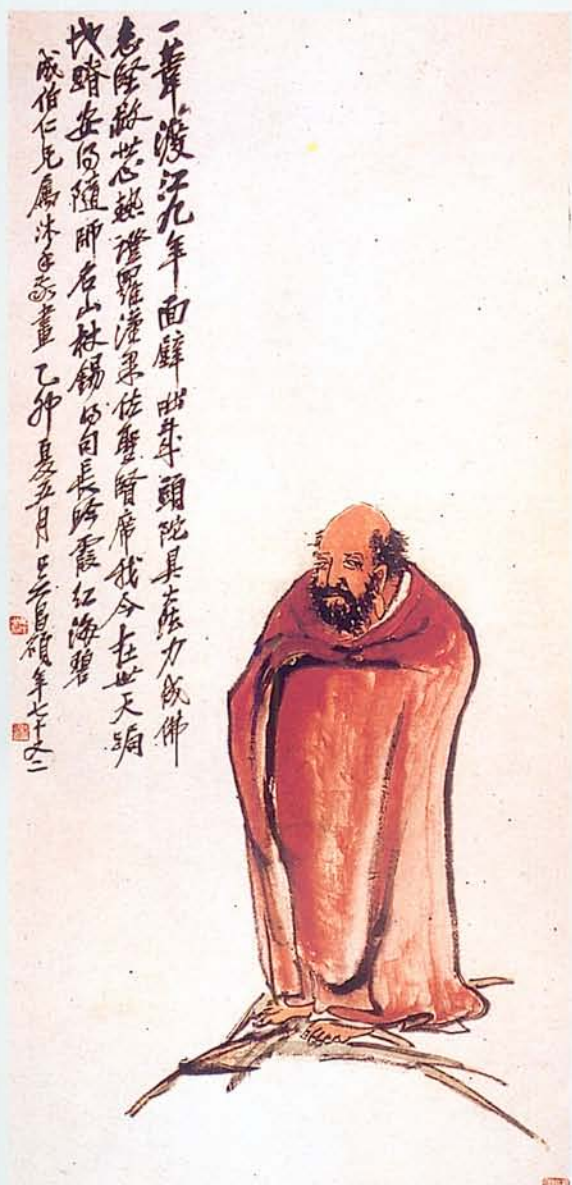 一葦渡江九年面壁咄哉頭陀具大力成佛
志堅救世心熱證羅漢果佐聖賢席我今在世天跼
地蹐安得隨師名山杖錫得句長吟霞紅海碧
成伯仁兄屬沐手敬畫乙卯夏五月吳昌碩年七十又二